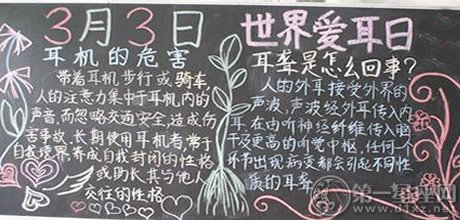 3月3日
耳机的危害
带着耳机步行或骑车,
人的注意力集中于耳机内的
声音,而忽略交通安全,造成伤
害事故,长期使用耳机者,常于
自我境界,养成自我封闭的性格
或助长其与他人
交往的性格
世界爱耳日
耳聋是怎么回事?
人的外耳接受外界的
声波,声波经外耳传入内
耳,在由听神经纤维传入脑
干及更高的听觉中枢,任何一个
环节出现病变都会引起不同性
质的耳聋
第一星座网
www.d1xz.net